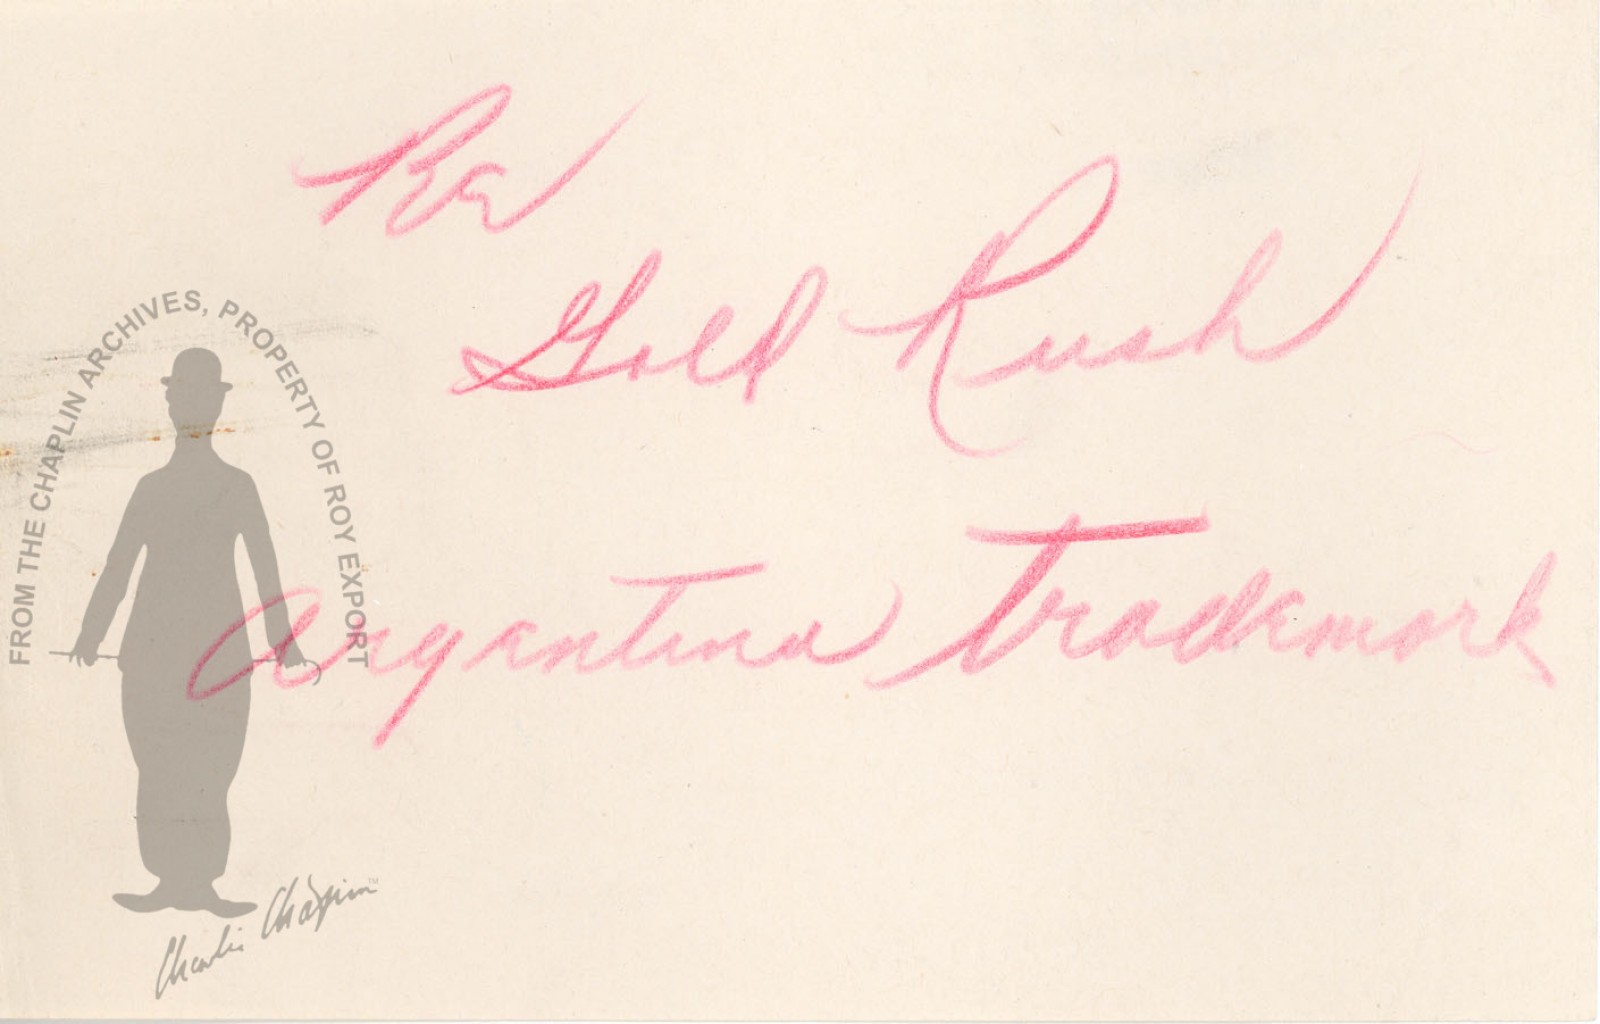 Re
Gold Rush
Argentina Trademark
FROM THE CHAPLIN ARCHIVES, PROPERTY OF ROY EXPORT
Charlie Chaplin™